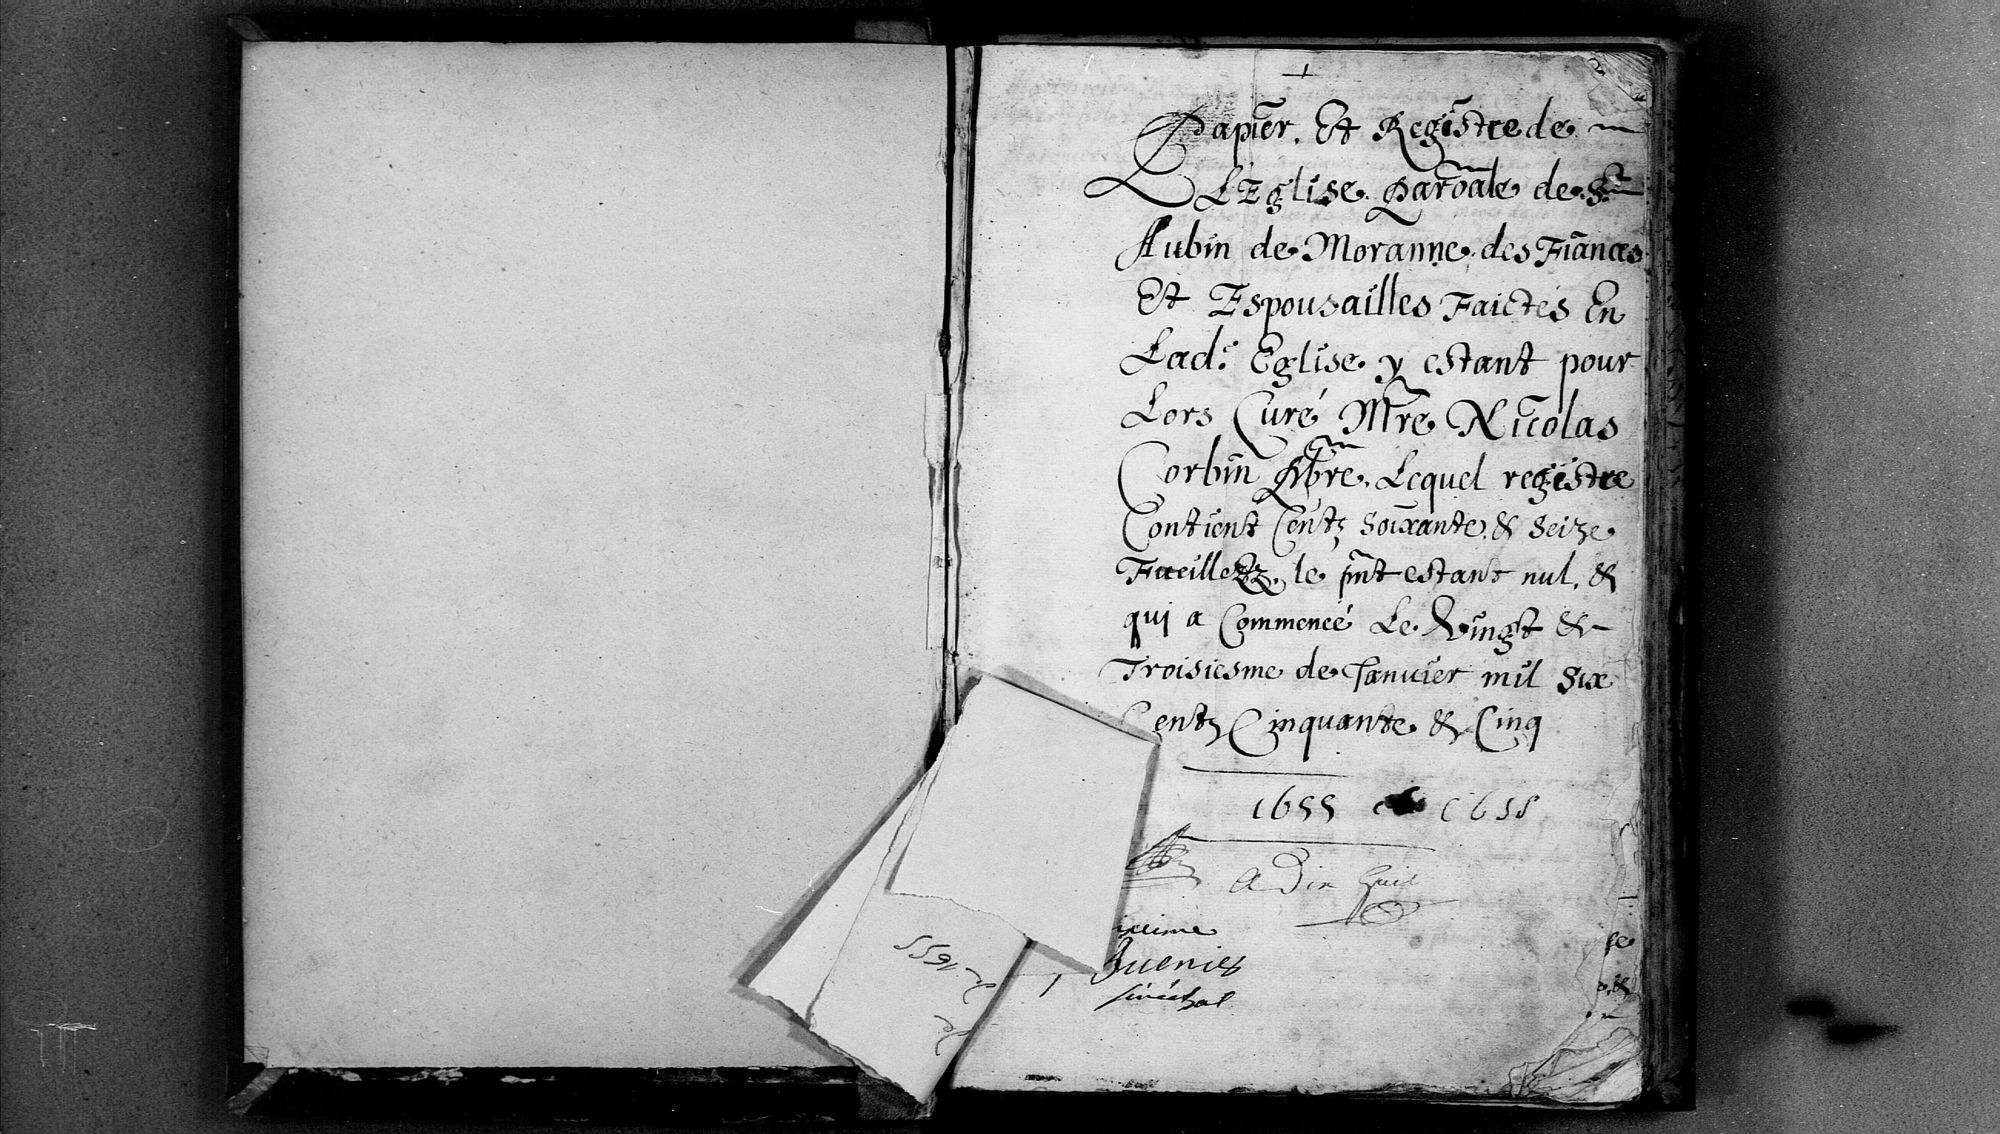 1
Papier. Et Registre de
L'Eglise. Paroãle de St
Aubin de Moranne. des Fiances
Et Espousailles Faictes En
Lad. Eglise. y estant pour
Lors Curé Mre Nicolas
Corbin Pbre. Lequel registre
Contient Centz Soixante. & Seize
Fueilletz. le pñt estant nul. &
qui a Commencé Le. Vingt &
Troisiesme de Januier mil Six
Centz Cinquante & Cinq
1655 1655
Juenies
1655